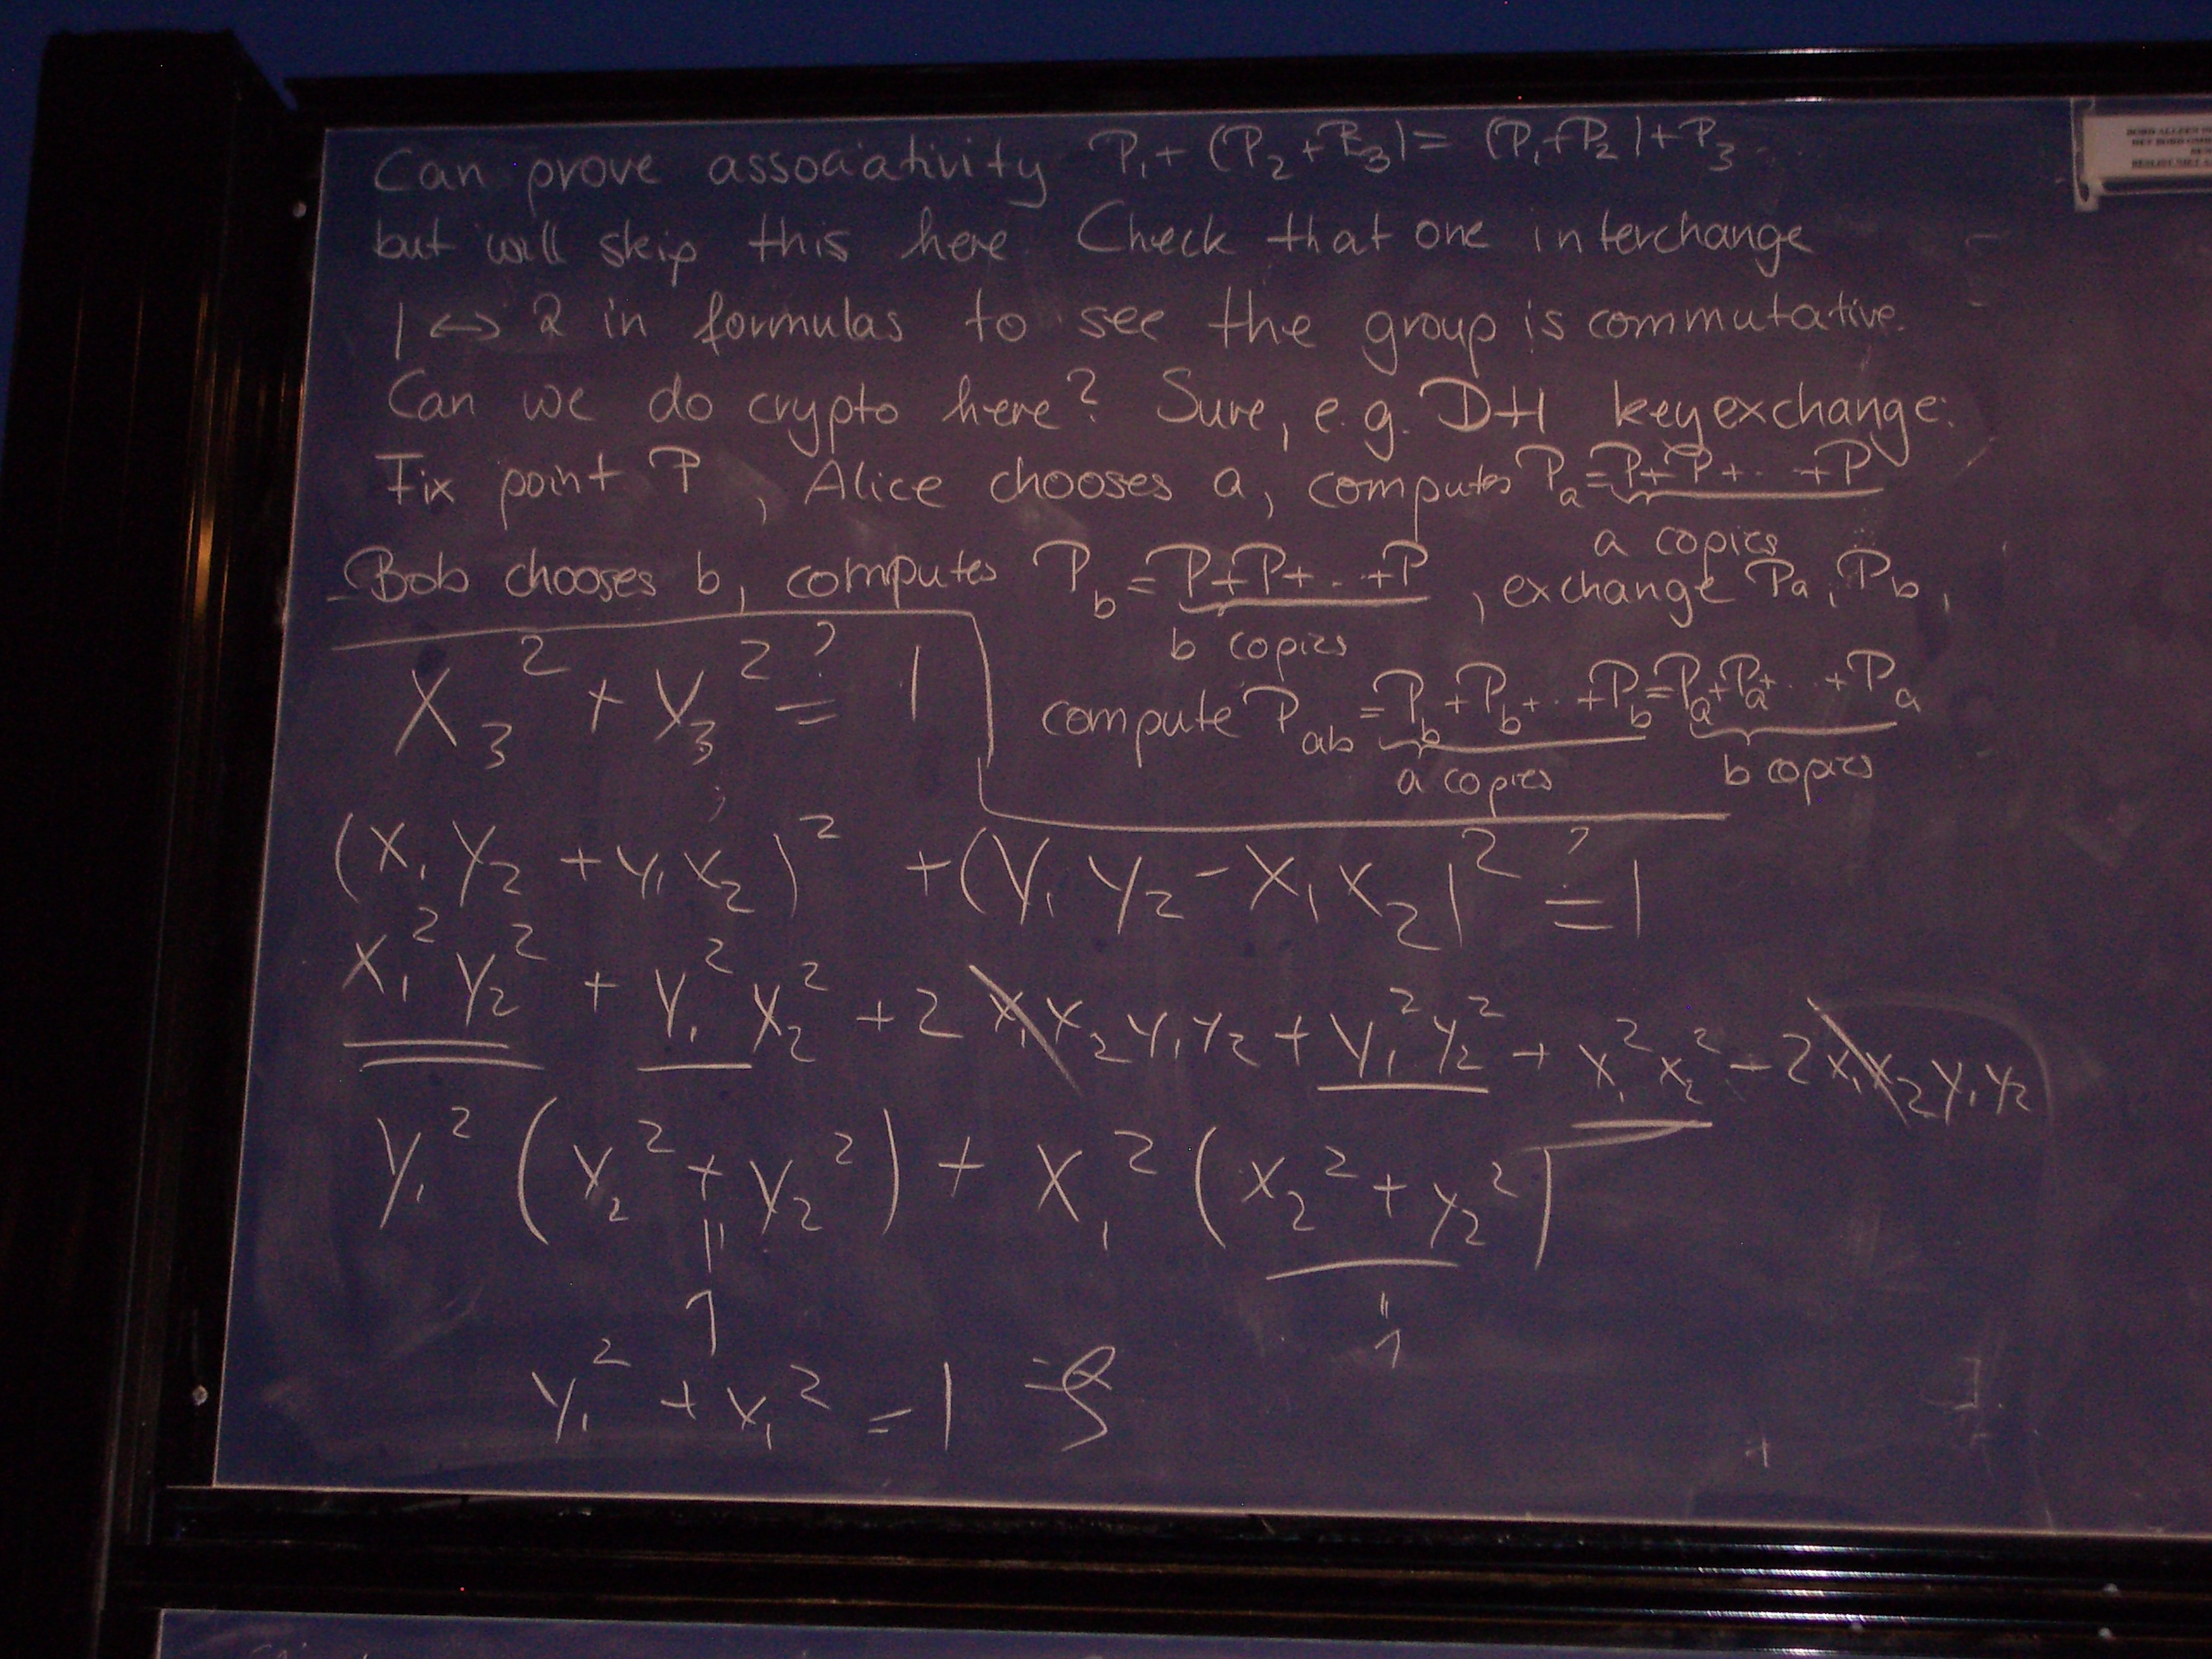 Can prove associativity P₁ + (P₂ + P₃) = (P₁ + P₂) + P₃
but will skip this here. Check that one interchange
1 ↔ 2 in formulas to see the group is commutative.
Can we do crypto here? Sure, e.g. DH key exchange:
Fix point P, Alice chooses a, computes Pₐ = P+P+...+P
a copies
Bob chooses b, computes P_b = P+P+...+P, exchange Pₐ, P_b,
b copies
compute P_ab = P_b+P_b+...+P_b = Pₐ+Pₐ+...+Pₐ
a copies b copies
x₃² + y₃² ≟ 1
(x₁y₂ + y₁x₂)² + (y₁y₂ - x₁x₂)² ≟ 1
x₁²y₂² + y₁²x₂² + 2x₁x₂y₁y₂ + y₁²y₂² + x₁²x₂² - 2x₁x₂y₁y₂
y₁² (x₂² + y₂²) + x₁² (x₂² + y₂²)
= 1 = 1
y₁² + x₁² = 1